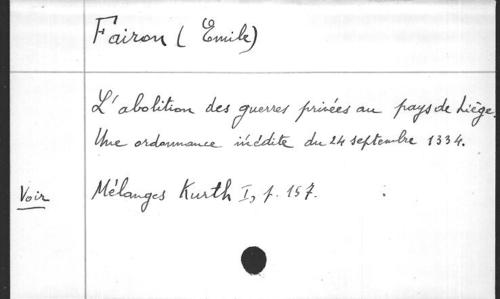 Fairon (Emile)
L'abolition des guerres privées au pays de Liège.
Une ordonnance inédite du 24 septembre 1334.
Voir Mélanges Kurth I, p. 157.